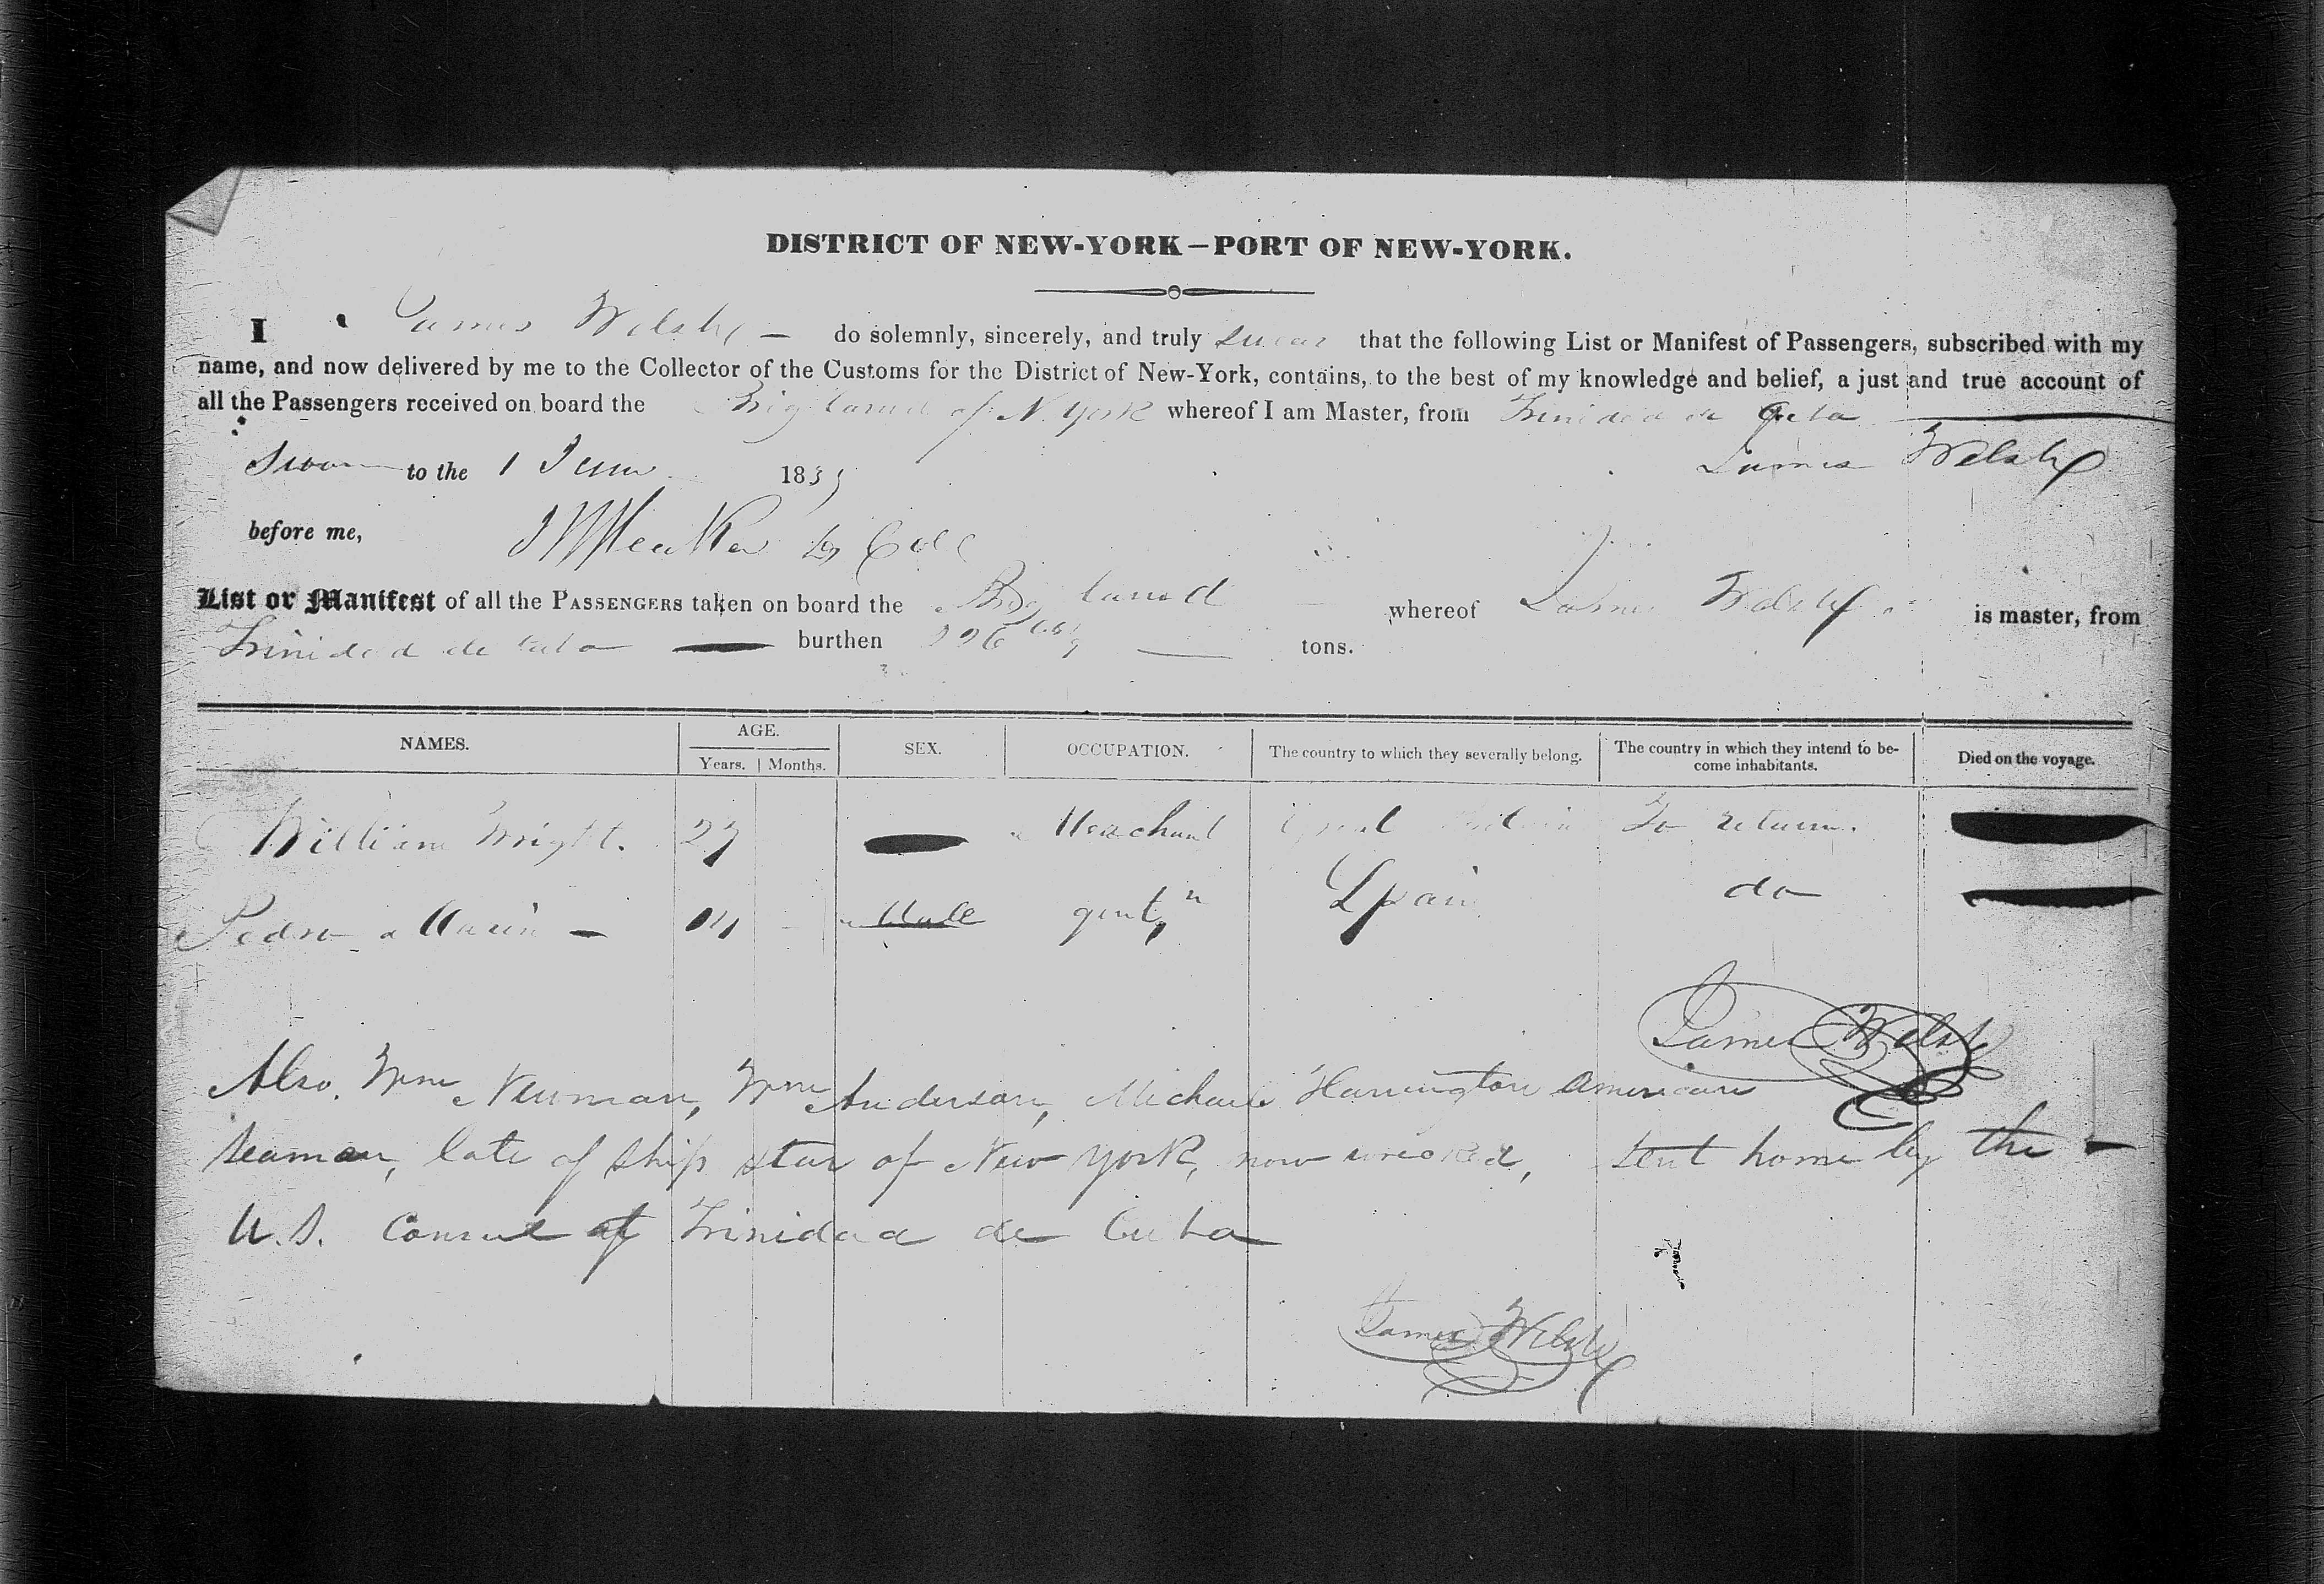 DISTRICT OF NEW-YORK—PORT OF NEW-YORK.
I James Welsh — do solemnly, sincerely, and truly swear that the following List or Manifest of Passengers, subscribed with my
name, and now delivered by me to the Collector of the Customs for the District of New-York, contains, to the best of my knowledge and belief, a just and true account of
all the Passengers received on board the Brig of N. York whereof I am Master, from Trinidad de Cuba
Sworn to the 1 June 183 James Welsh
before me,
List or Manifest of all the PASSENGERS taken on board the Brig whereof James Welsh is master, from
Trinidad de Cuba — burthen tons.
NAMES. AGE. SEX. OCCUPATION. The country to which they severally belong. The country in which they intend to become inhabitants. Died on the voyage.
Years. Months.
William Wright. 27 — Merchant Great Britain To return. —
Pedro Marin — Male gentn Spain do —
James Welsh
Also, Wm Newman, Wm Anderson, Michael Harrington American
seaman, late of ship star of New York, now wrecked, sent home by the —
U.S. Consul at Trinidad de Cuba
James Welsh